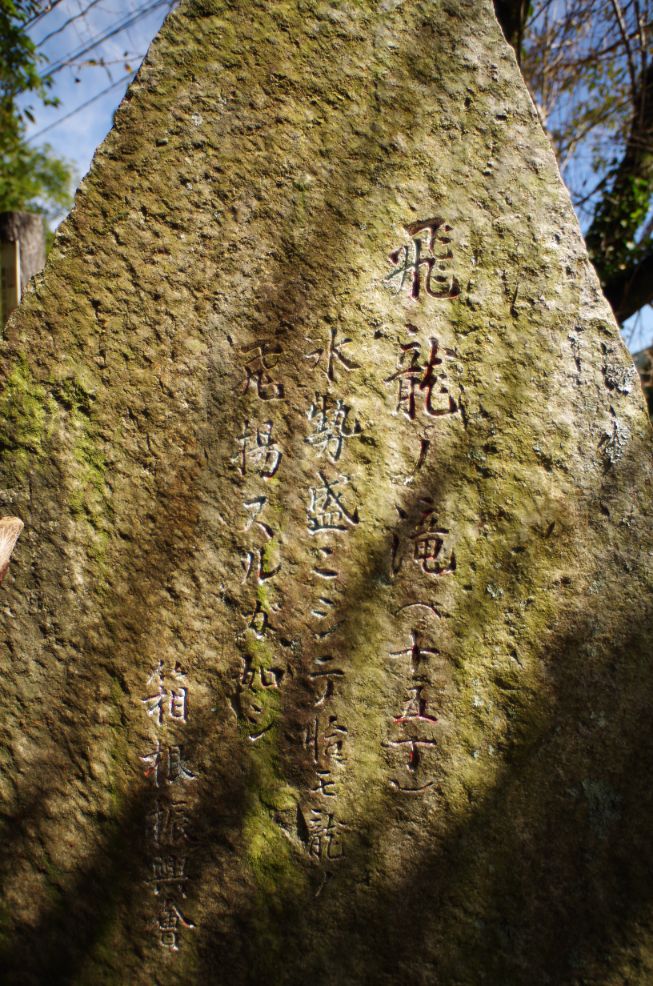 飛龍ノ滝（十五丁）
水勢盛ニシテ恰モ龍ノ
飛揚スルガ如シ
箱根振興會